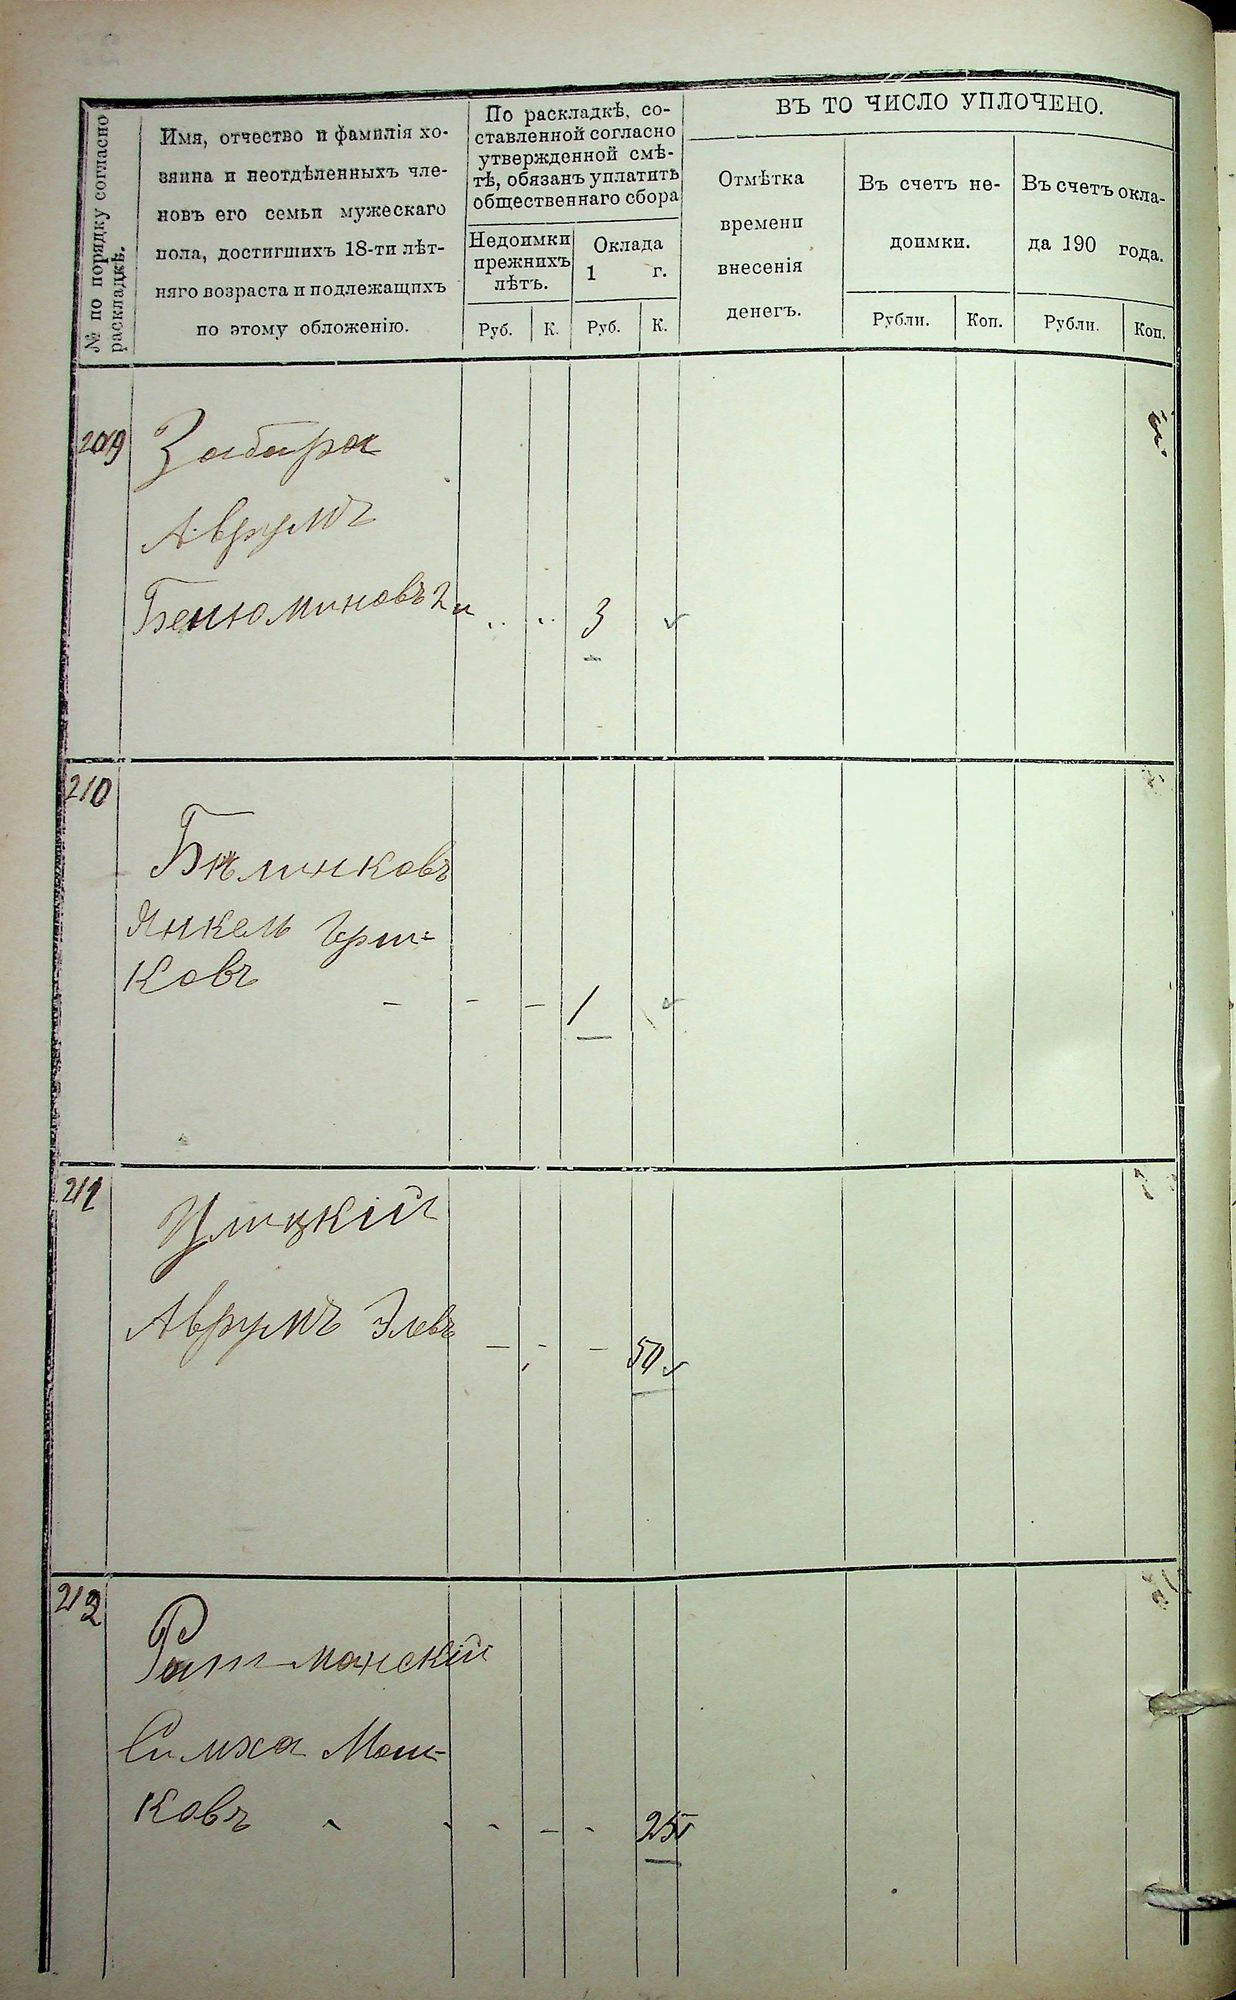 № по порядку согласно
раскладкѣ.
Имя, отчество и фамилія хо-
зяина и неотдѣленныхъ чле-
новъ его семьи мужескаго
пола, достигшихъ 18-ти лѣт-
няго возраста и подлежащихъ
по этому обложенію.
По раскладкѣ, со-
ставленной согласно
утвержденной смѣ-
тѣ, обязанъ уплатить
общественнаго сбора
Недоимки
прежнихъ
лѣтъ.
Оклада
1 г.
Руб. К. Руб. К.
ВЪ ТО ЧИСЛО УПЛОЧЕНО.
Отмѣтка
времени
внесенія
денегъ.
Въ счетъ не-
доимки.
Въ счетъ окла-
да 190 года.
Рубли. Коп. Рубли. Коп.
209 Забара
Аврумъ
Бенюминовъ 2й 3
210
Бѣлинковъ
Янкель Герш-
ковъ 1
211
Улицкій
Аврумъ Элевъ 50
212
Ратманскій
Симха Мош-
ковъ 25